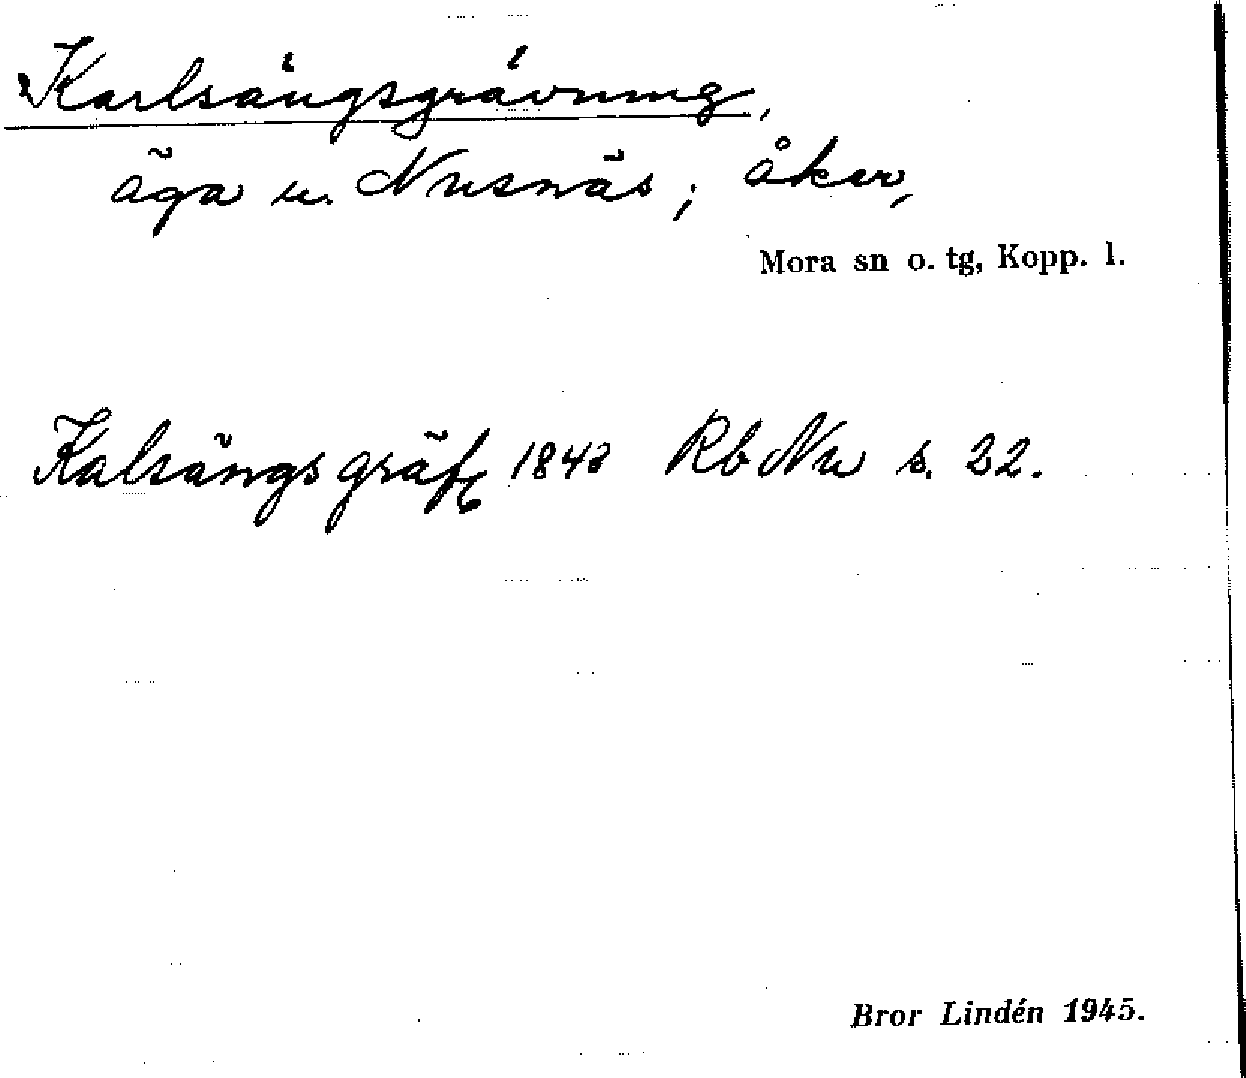 Karlsängsgrävning,
äga u. Nusnäs; åker,
Mora sn o. tg, Kopp. l.
Kalsängsgräf 1843 Rb Nu s. 22.
Bror Lindén 1945.